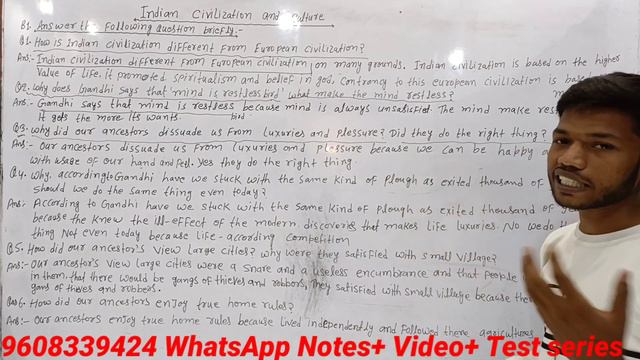 Indian Civilization and Culture
B1. Answer the following question briefly:-
Q1. How is Indian civilization different from European civilization?
Ans:- Indian civilization different from European civilization, on many grounds. Indian civilization is based on the higher
value of life. it promoted spiritualism and belief in god. Contrary to this european civilization is bas
Q2. Why does Gandhi says that 'mind is restless bird' what make the mind restless?
Ans:- Gandhi says that mind is restless because mind is always unsatisfied. The mind make res
It gets the more its wants. bird
Q3. Why did our ancestors dissuade us from luxuries and plessure? Did they do the right thing?
Ans:- Our ancestors dissuade us from luxuries and plessure because we can be happy a
with usage of our hand and feet. Yes they do the right thing.
Q4. Why, according to Gandhi have we stuck with the same kind of plough as exited thousand of
should we do the same thing even today?
Ans:- According to Gandhi have we stuck with the same kind of plough as exited thousand of ye
because the knew the ill-effect of the modern discoveries that makes life luxuries. No we do t
thing Not even today because life-according competition
Q5. How did our ancestor's view large cities? why were they satisfied with small village?
Ans:- Our ancestor's view large cities were a snare and a useless encumbrance and that people
in them. that there would be gangs of thieves and robbers, They satisfied with small village because the
gans of thievs and robbers.
Q6. How did our ancestors enjoy true home rules?
Ans:- Our ancestors enjoy true home rules because lived independently and followed there agricultures
9608339424 WhatsApp Notes+ Video+ Test series